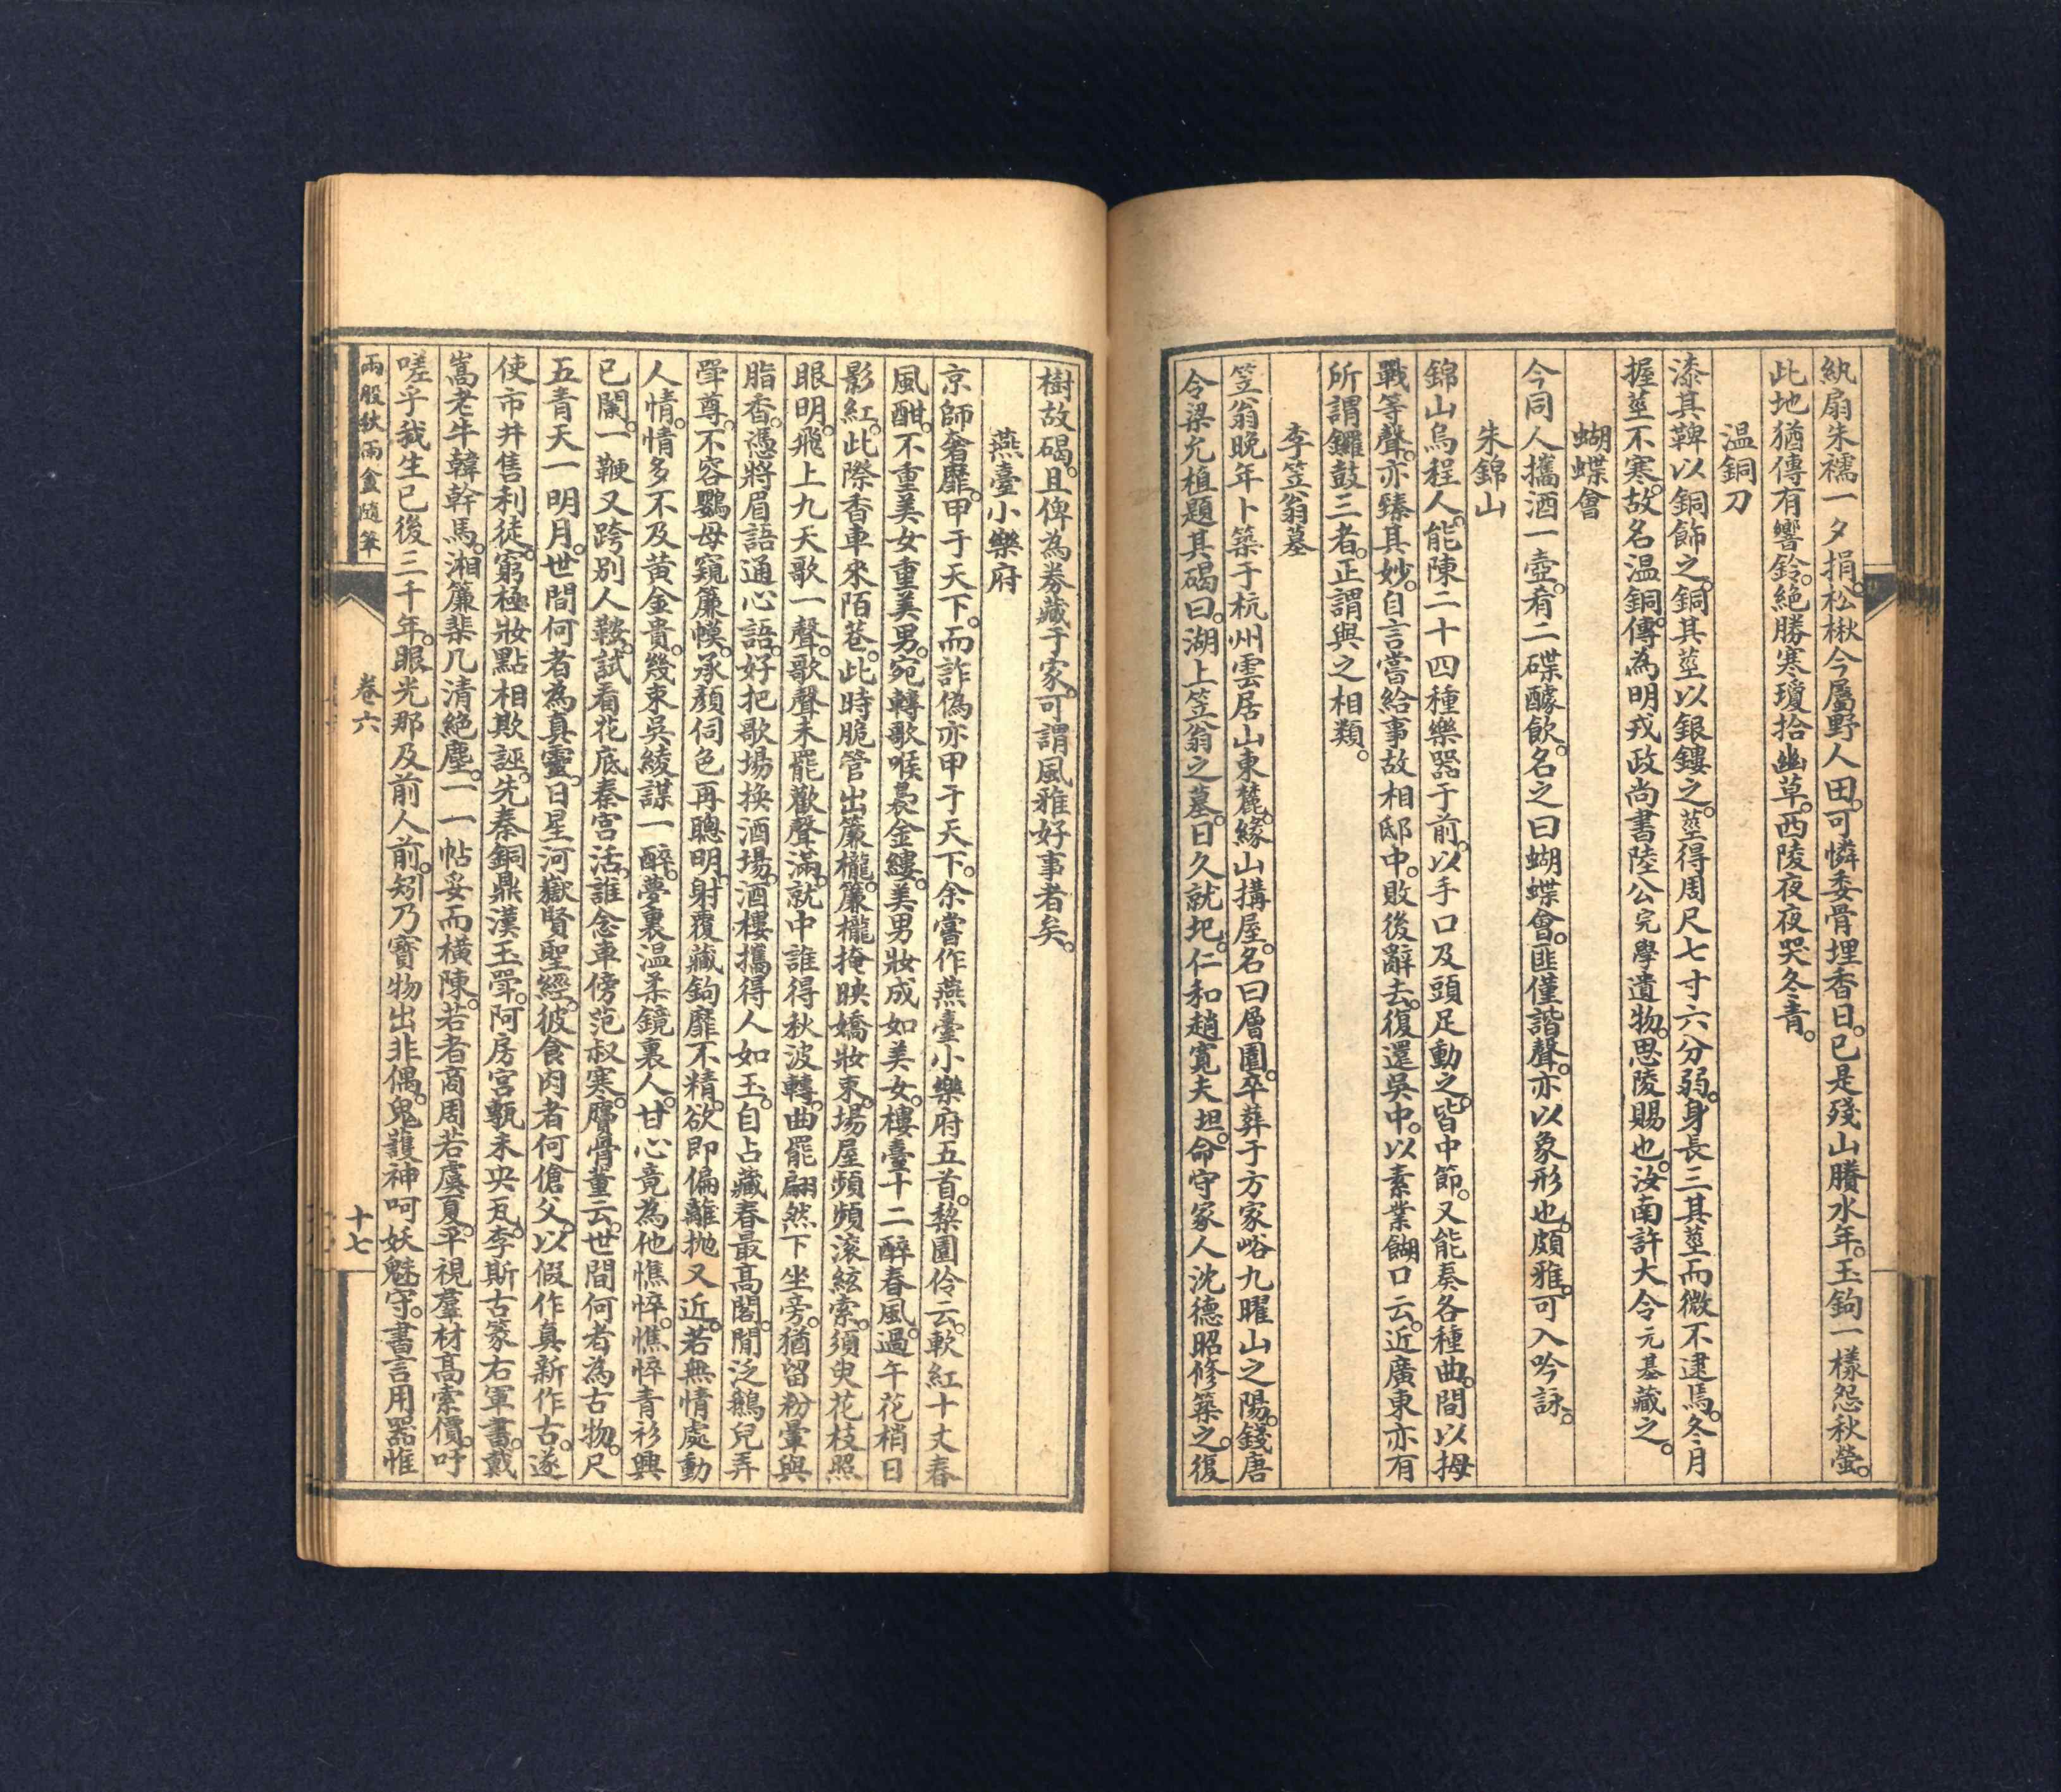 紈扇朱襦一夕捐。松楸今屬野人田。可憐委骨埋香日。已是殘山賸水年。玉鉤一樣怨秋螢。
此地猶傳有響鈴。絕勝寒瓊拾幽草。西陵夜夜哭冬青。
温銅刀
漆其鞞以銅飾之。銅其莖以銀鏤之。莖得周尺七寸六分弱。身長三其莖而微不逮焉。冬月
握莖不寒。故名温銅。傳為明戎政尚書陸公完學遺物。思陵賜也。汝南許大令元基藏之。
蝴蝶會
今同人攜酒一壺。肴二碟醵飲。名之曰蝴蝶會。匪僅諧聲。亦以象形也。頗雅。可入吟詠。
朱錦山
錦山烏程人。能陳二十四種樂器于前。以手口及頭足動之。皆中節。又能奏各種曲。間以拇
戰等聲。亦臻其妙。自言嘗給事故相邸中。敗後辭去。復還吳中。以素業餬口云。近廣東亦有
所謂鑼鼓三者。正謂與之相類。
李笠翁墓
笠翁晚年卜築于杭州雲居山東麓。緣山搆屋。名曰層園。卒葬于方家峪九曜山之陽。錢唐
令梁允植題其碣曰。湖上笠翁之墓。日久就圮。仁和趙寬夫坦。命守冢人沈德昭修築之。復
樹故碣。且俾為券藏于家。可謂風雅好事者矣。
燕臺小樂府
京師奢靡。甲于天下。而詐偽亦甲于天下。余嘗作燕臺小樂府五首。棃園伶云。軟紅十丈春
風酣。不重美女重美男。宛轉歌喉裊金縷。美男妝成如美女。樓臺十二醉春風。過午花梢日
影紅。此際香車來陌巷。此時脆管出簾櫳。簾櫳掩映嬌妝束。場屋頻頻滚絃索。須臾花枝照
眼明。飛上九天歌一聲。歌聲未罷歡聲滿。就中誰得秋波轉。曲罷翩然下坐旁。猶留粉暈與
脂香。憑將眉語通心語。好把歌場換酒場。酒樓攜得人如玉。自占藏春最高閣。閒泛鵝兒弄
斝尊。不容鸚母窺簾幙。承顏伺色再聰明。射覆藏鉤靡不精。欲即偏離抛又近。若無情處動
人情。情多不及黃金貴。幾束吳綾謀一醉。夢裏温柔鏡裏人。甘心竟為他憔悴。憔悴青衫興
已闌。一鞭又跨別人鞍。試看花底秦宮活。誰念車傍范叔寒。贗骨董云。世間何者為古物。尺
五青天一明月。世間何者為真靈。日星河嶽賢聖經。彼食肉者何傖父。以假作真新作古。遂
使市井售利徒。窮極妝點相欺誣。先秦銅鼎漢玉斝。阿房宮甎未央瓦。李斯古篆右軍書。戴
嵩老牛韓幹馬。湘簾棐几清絕塵。一一帖妥而橫陳。若者商周若虞夏。平視羣材高索價。吁
嗟乎我生已後三千年。眼光那及前人前。矧乃寶物出非偶。鬼護神呵妖魅守。書言用器惟
兩般秋雨盦隨筆
卷六
十七